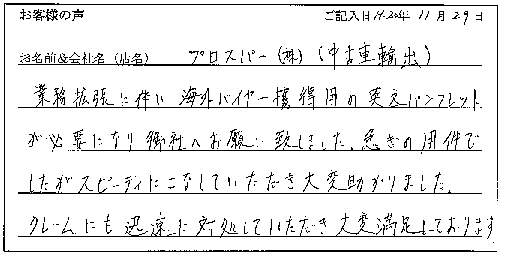 お客様の声 ご記入日 H.20年 11月29日
お名前&会社名(店名) プロスパー(株)(中古車輸出)
業務拡張に伴い海外バイヤー獲得用の英文パンフレット
が必要になり御社へお願い致しました。急ぎの用件で
したがスピーディにこなしていただき大変助かりました。
クレームにも迅速に対処していただき大変満足しております